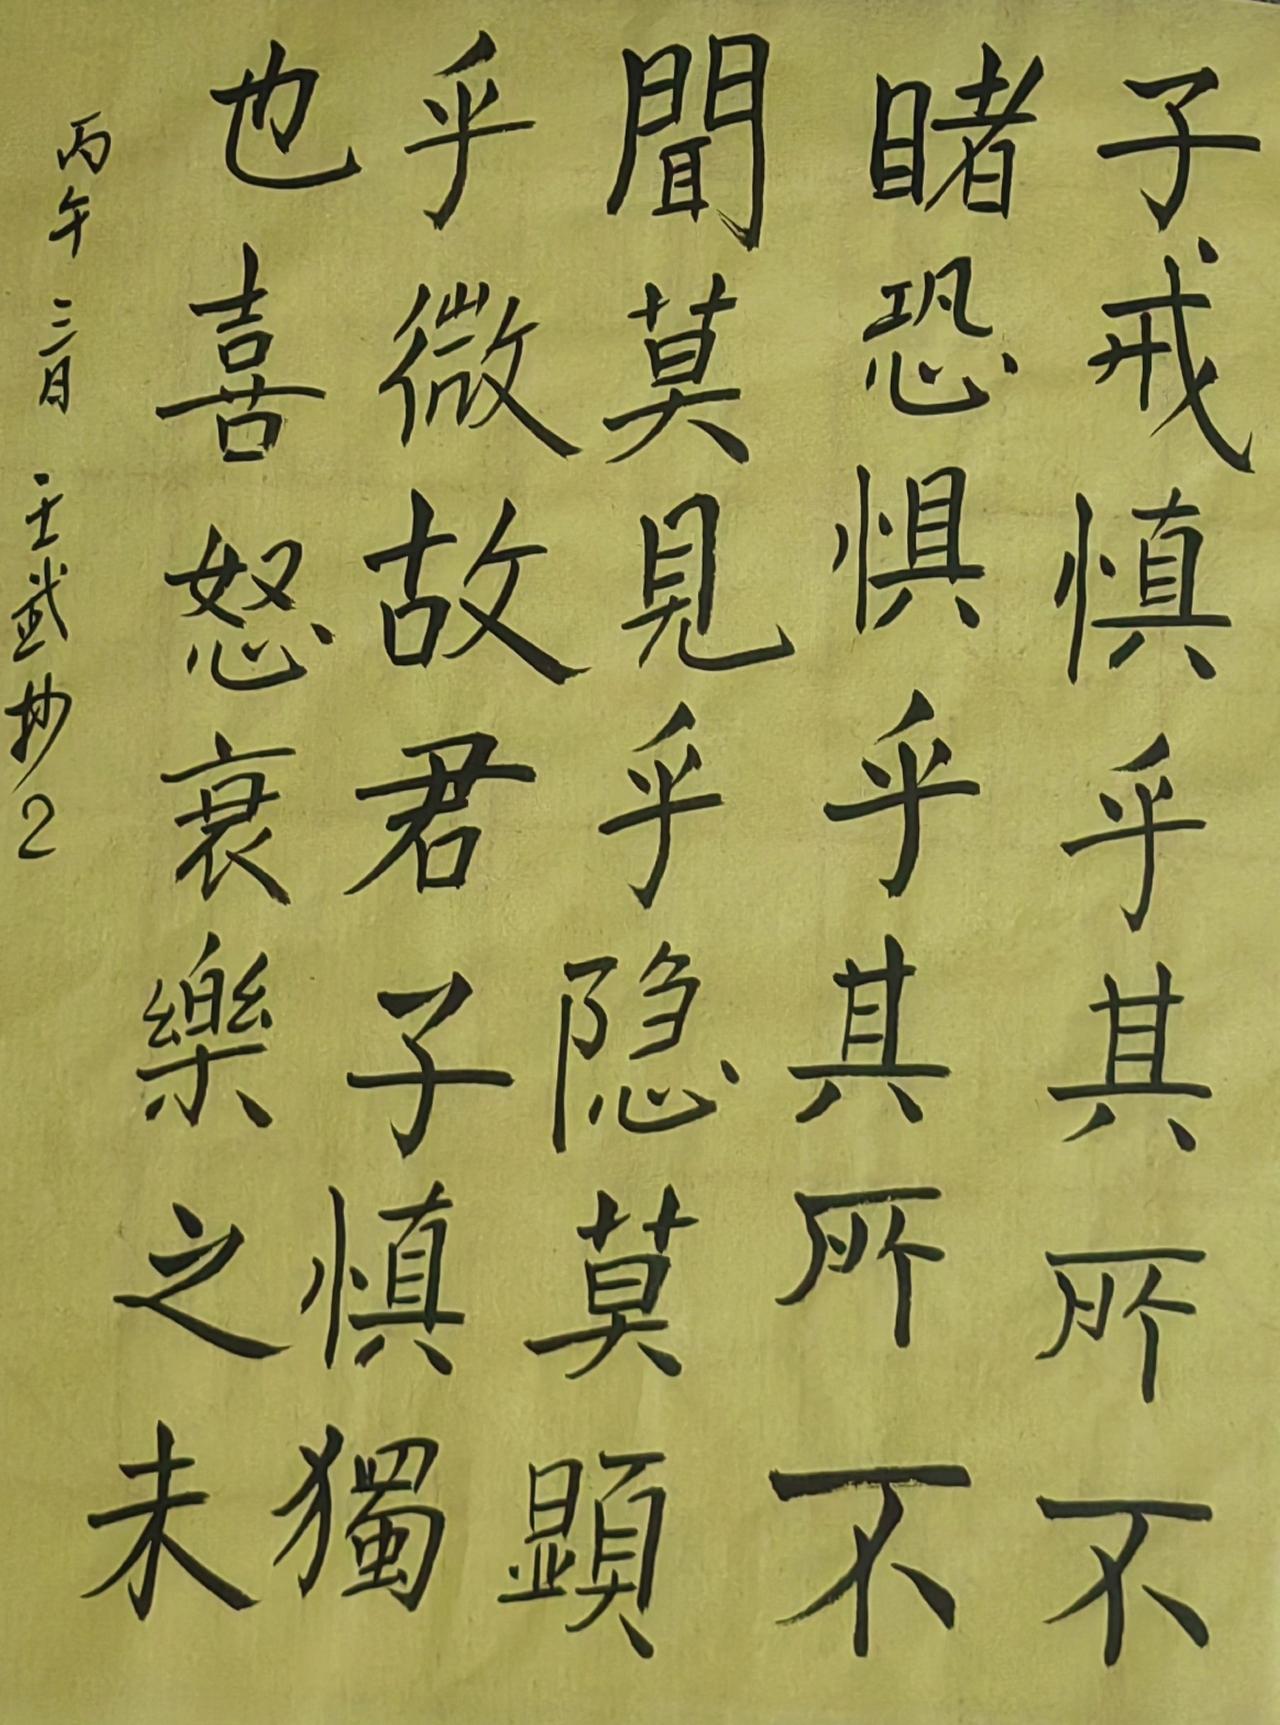 子戒慎乎其所不
睹恐惧乎其所不
聞莫見乎隐莫顕
乎微故君子慎獨
也喜怒哀樂之未
丙午三月王武抄2